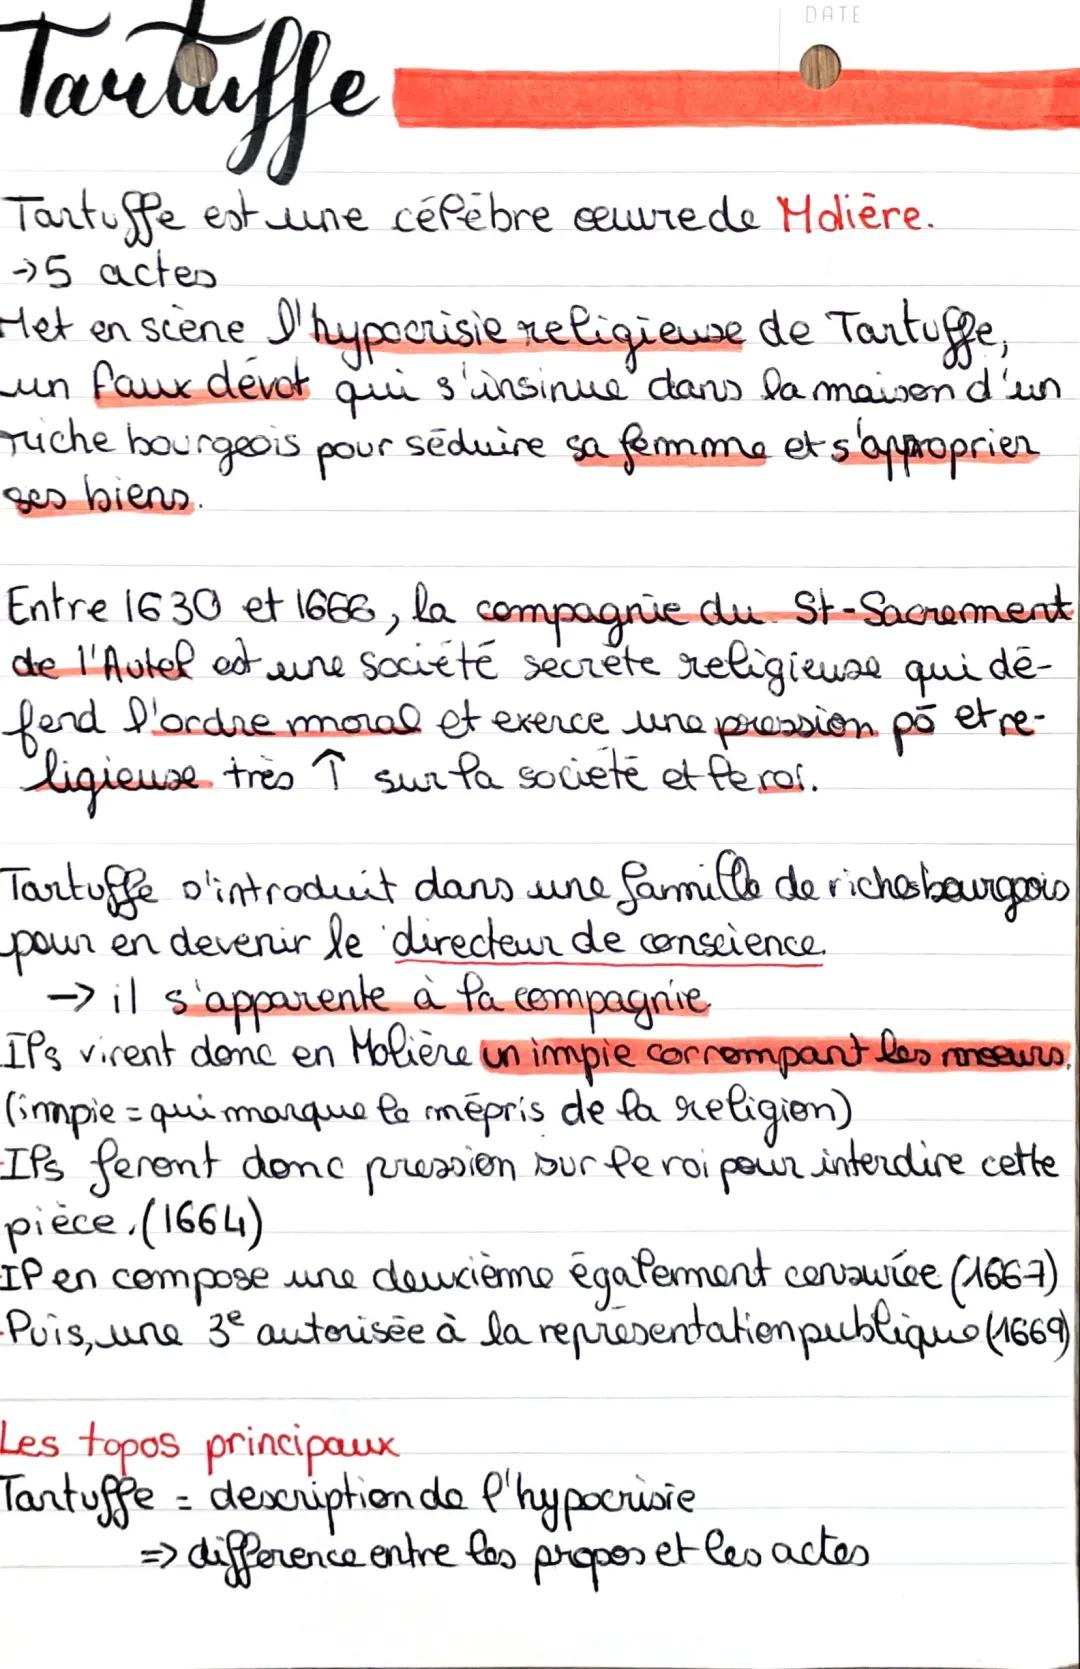 DATE
Tartuffe
Tartuffe est une célèbre œuvre de Molière.
→5 actes
Met en scène l'hypocrisie religieuse de Tartuffe,
un faux dévot qui s'insinue dans la maison d'un
riche bourgeois pour séduire sa femme et s'approprier
ses biens.
Entre 1630 et 1666, la compagnie du St-Sacrement
de l'Autel est une société secrète religieuse qui dé-
fend l'ordre moral et exerce une pression pō et re-
ligieuse très ↑ sur la société et le roi.
Tartuffe s'introduit dans une famille de riches bourgeois
pour en devenir le directeur de conscience.
→ il s'apparente à la compagnie
Ils virent donc en Molière un impie corrompant les mœurs.
(impie = qui marque le mépris de la religion)
Ils feront donc pression sur le roi pour interdire cette
pièce. (1664)
Il en compose une deuxième également censurée (1667)
Puis, une 3e autorisée à la représentation publique (1669)
Les topos principaux
Tartuffe = description de l'hypocrisie
=> différence entre les propos et les actes